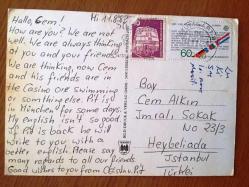 Hallo Cem!
Mi 11.8.82
How are you? We are not
well. We are always thinking
at you and your friends.
We are thinking, now Cem
and his friends are in
the Casino or swimming
or something else. Pit is
in Minden for some days.
My english isn't so good.
If Pit is back he will
write to you with a
better english. Please say
many regards to all our friends.
Good wishes to you from Pit
60
Bay
Cem Alkın
Imralı Sokak
No 23/3
Heybeliada
Istanbul
Türkei